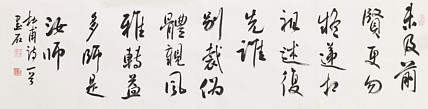 未及前
賢更勿
疑遞相
祖述復
先誰
別裁偽
體親風
雅轉益
多師是
汝師
杜甫詩一首